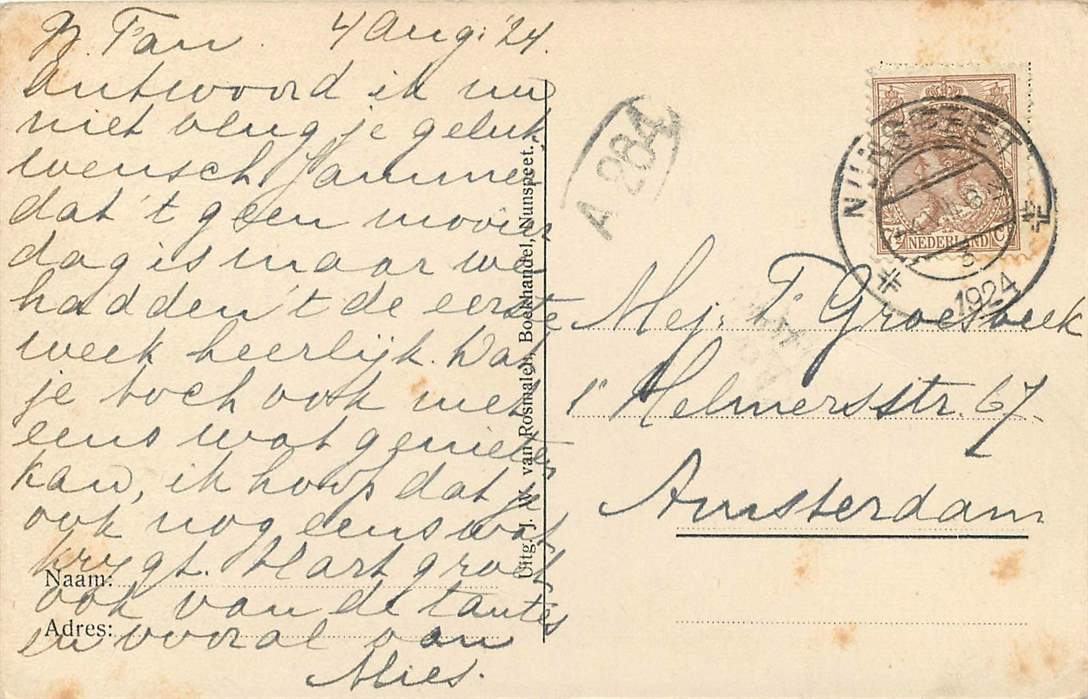 4 Aug: '24.
Antwoord ik nu
niet vlug je geluk
wensch Jammer
dat 't geen mooier
dag is maar we
hadden 't de eerste
week heerlijk. Dat
je toch ook niet
eens wat genieten
kan, ik hoop dat je
ook nog eens wat
krygt. Hart groet
ook van de tantes
en vooral van
Mies.
Naam:
Adres:
Uitg. J. W. van Rosmalen, Boekhandel, Nunspeet.
A 284
NUNSPEET
1924
7½ NEDERLAND CT
Mej: T. Groesbeek
1e Helmersstr. 67
Amsterdam